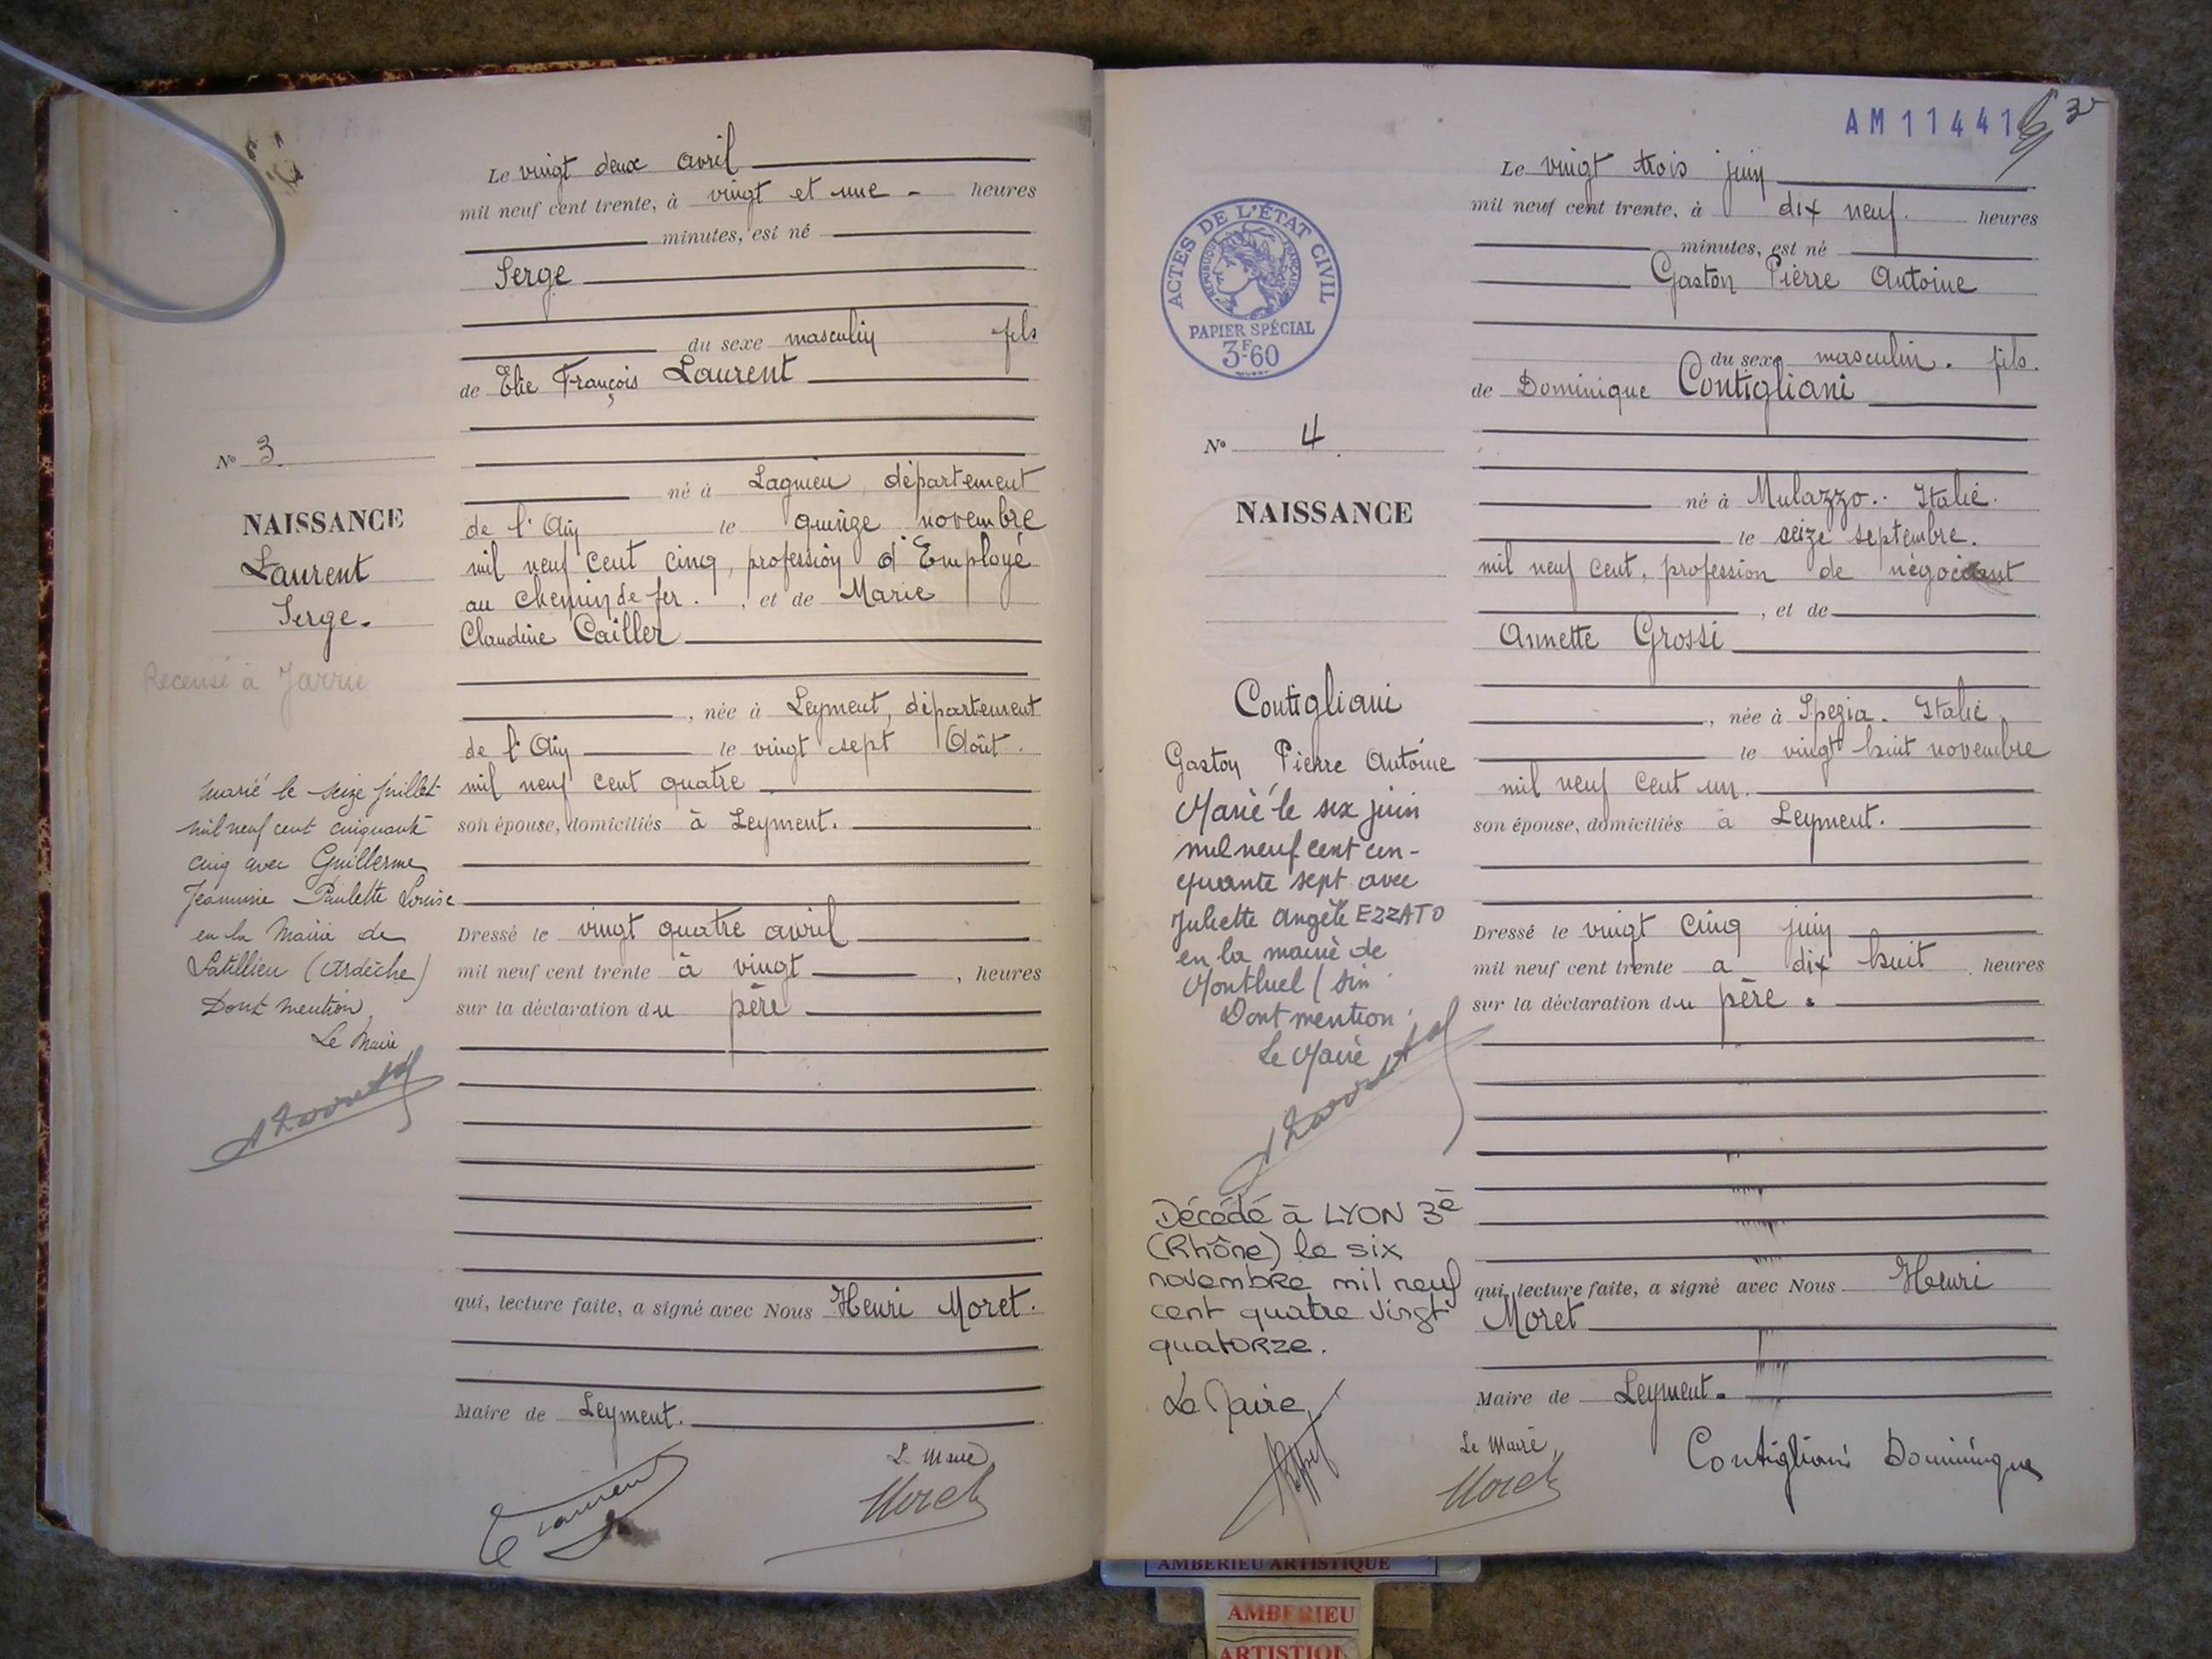 Le vingt deux avril
mil neuf cent trente, à vingt et une - heures
minutes, est né
Serge
du sexe masculin fils
de Elie François Laurent
N° 3
né à Lagnieu, département
de l'Ain le quinze novembre
NAISSANCE
mil neuf cent cinq, profession d'Employé
Laurent
au chemin de fer. , et de Marie
Serge.
Claudine Cailler
Recensé à Jarrie
, née à Leyment, département
de l'Ain le vingt sept Août.
mil neuf cent quatre
son épouse, domiciliés à Leyment.
marié le seize juillet
mil neuf cent cinquante
cinq avec Guillerme
Jeannine Paulette Louise
en la Mairie de
Satillieu (Ardèche)
Dont mention,
Le Maire,
Dressé le vingt quatre avril
mil neuf cent trente à vingt , heures
sur la déclaration du père
qui, lecture faite, a signé avec Nous Henri Moret.
Maire de Leyment.
Le Maire,
E Laurent
Moret
AM 11441
3
Le vingt trois juin
mil neuf cent trente, à dix neuf. heures
minutes, est né
Gaston Pierre Antoine
ACTES DE L'ÉTAT CIVIL
RÉPUBLIQUE FRANÇAISE
PAPIER SPÉCIAL
3F60
du sexe masculin. fils.
de Dominique Contigliani
N° 4.
né à Mulazzo. Italie.
NAISSANCE
le seize septembre.
mil neuf cent, profession de négociant
, et de
Annette Grossi
Contigliani
Gaston Pierre Antoine
, née à Spezia. Italie,
le vingt huit novembre
mil neuf cent un.
son épouse, domiciliés à Leyment.
Marié le six juin
mil neuf cent cin-
quante sept avec
Juliette Angèle EZZATO
en la mairie de
Montluel (Ain
Dont mention.
Le Maire
Dressé le vingt cinq juin
mil neuf cent trente a dix huit , heures
sur la déclaration du père.
Décédé à LYON 3è
(Rhône) le six
novembre mil neuf
cent quatre vingt
quatorze.
Le Maire,
qui, lecture faite, a signé avec Nous Henri
Moret
Maire de Leyment.
Le Maire,
Moret
Contigliani Dominique
AMBERIEU ARTISTIQUE
AMBERIEU